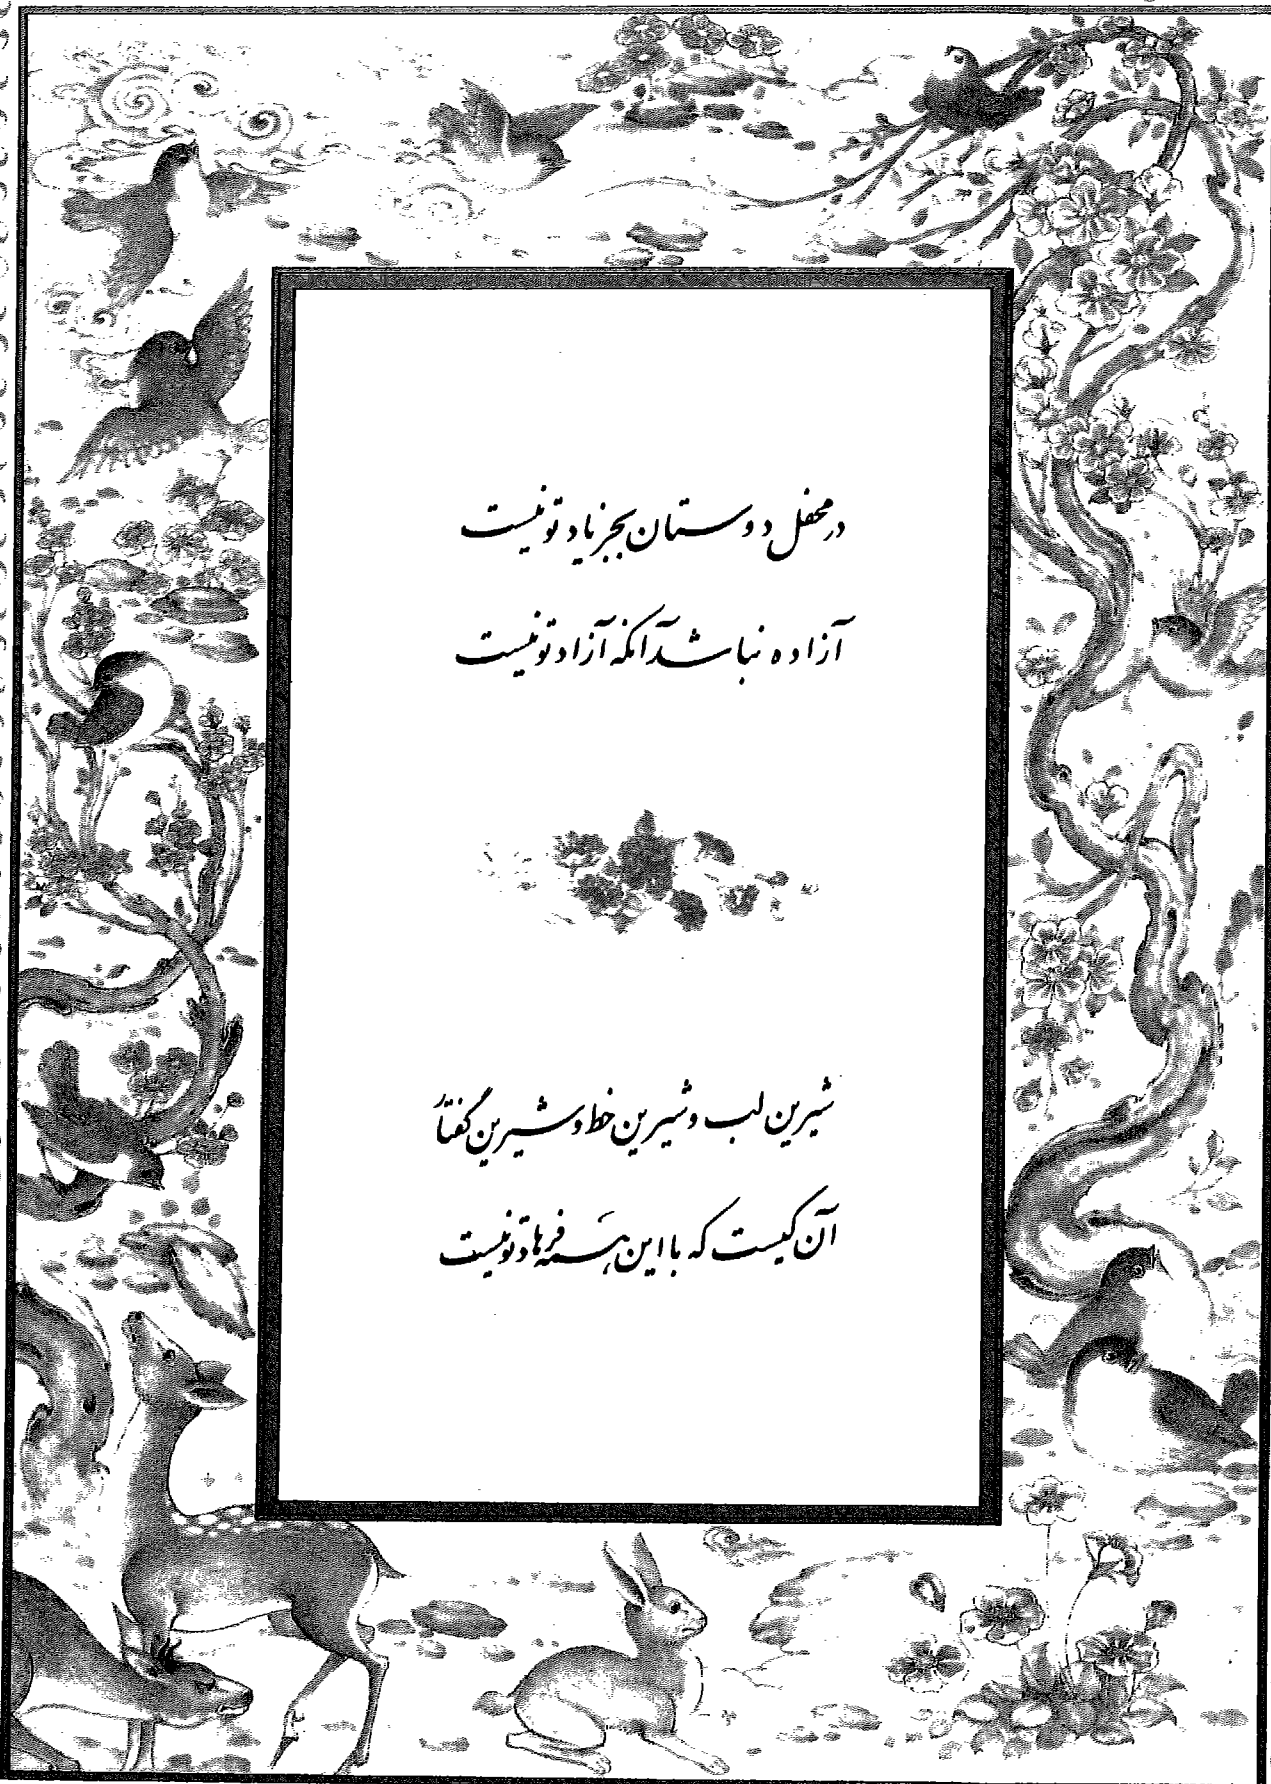 در محفل دوستان بجز یاد تو نیست
آزاده نباشد آنکه آزاد تو نیست
شیرین لب و شیرین خط و شیرین گفتار
آن کیست که با این همه فرهاد تو نیست